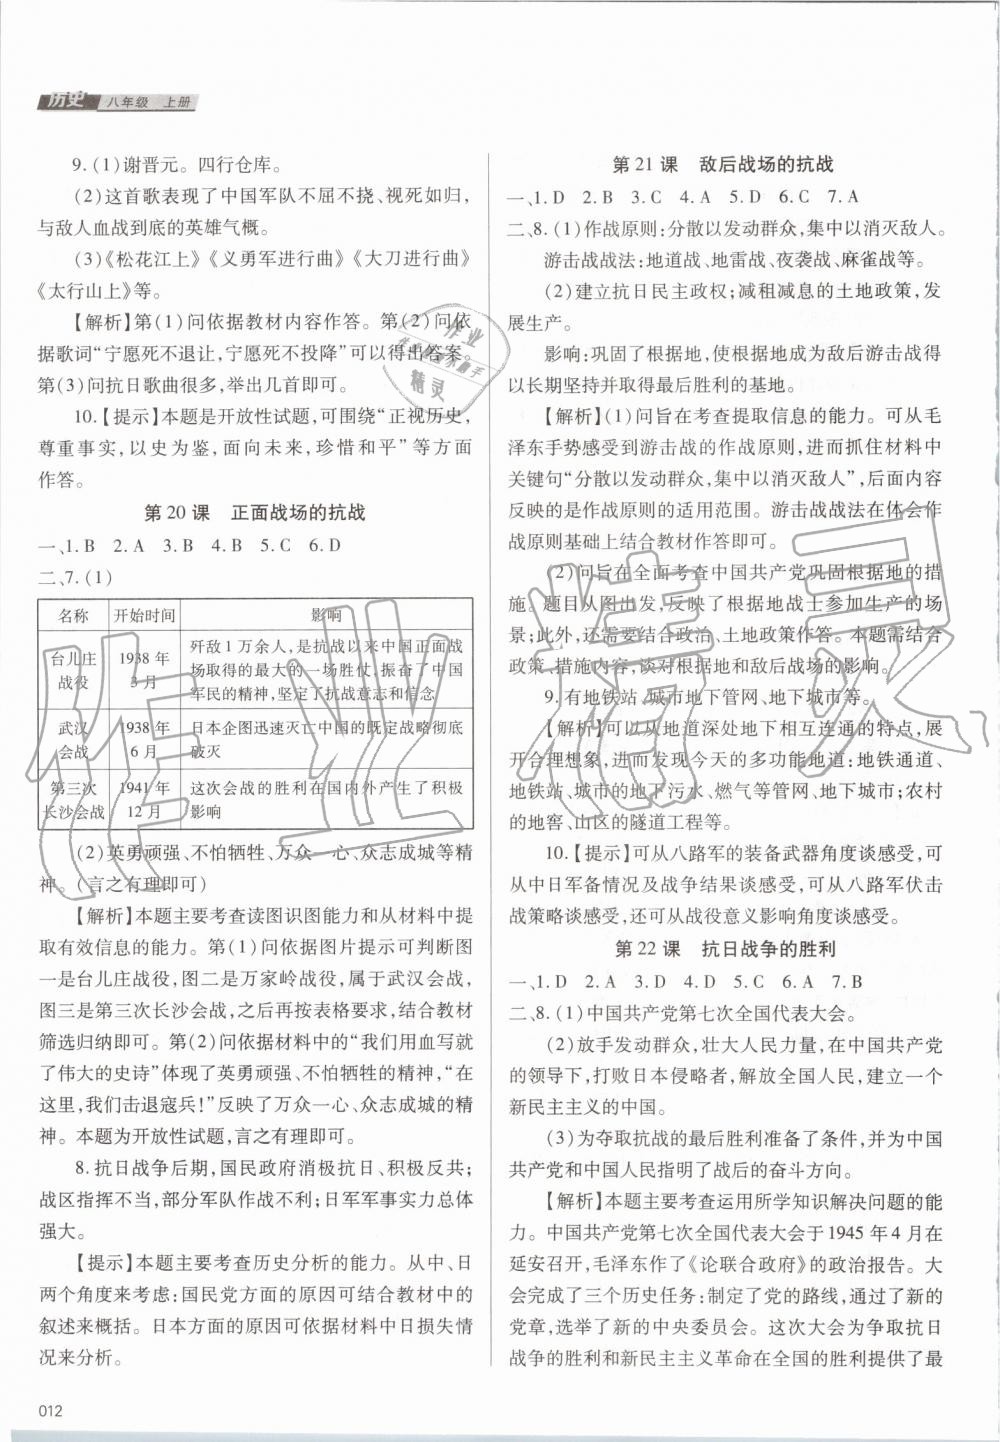 历史 八年级 上册
9.(1)谢晋元。四行仓库。
(2)这首歌表现了中国军队不屈不挠、视死如归,
与敌人血战到底的英雄气概。
(3)《松花江上》《义勇军进行曲》《大刀进行曲》
《太行山上》等。
【解析】第(1)问依据教材内容作答。第(2)问依
据歌词“宁愿死不退让,宁愿死不投降”可以得出答案。
第(3)问抗日歌曲很多,举出几首即可。
10.【提示】本题是开放性试题,可围绕“正视历史,
尊重事实,以史为鉴,面向未来,珍惜和平”等方面
作答。
第 20 课 正面战场的抗战
一、1. B 2. A 3. B 4. B 5. C 6. D
二、7.(1)
名称 开始时间 影响
台儿庄战役 1938 年 3 月 歼敌 1 万余人,是抗战以来中国正面战
场取得的最大的一场胜仗,振奋了中国
军民的精神,坚定了抗战意志和信念
武汉会战 1938 年 6 月 日本企图迅速灭亡中国的既定战略彻底
破灭
第三次长沙会战 1941 年 12 月 这次会战的胜利在国内外产生了积极
影响
(2)英勇顽强、不怕牺牲、万众一心、众志成城等精
神。(言之有理即可)
【解析】本题主要考查读图识图能力和从材料中提
取有效信息的能力。第(1)问依据图片提示可判断图
一是台儿庄战役,图二是万家岭战役,属于武汉会战,
图三是第三次长沙会战,之后再按表格要求,结合教材
筛选归纳即可。第(2)问依据材料中的“我们用血写就
了伟大的史诗”体现了英勇顽强、不怕牺牲的精神,“在
这里,我们击退寇兵!”反映了万众一心、众志成城的精
神。本题为开放性试题,言之有理即可。
8. 抗日战争后期,国民政府消极抗日、积极反共;
战区指挥不当,部分军队作战不利;日军军事实力总体
强大。
【提示】本题主要考查历史分析的能力。从中、日
两个角度来考虑:国民党方面的原因可结合教材中的
叙述来概括。日本方面的原因可依据材料中日损失情
况来分析。
012
第 21 课 敌后战场的抗战
一、1. D 2. B 3. C 4. A 5. D 6. C 7. A
二、8.(1)作战原则:分散以发动群众,集中以消灭敌人。
游击战战法:地道战、地雷战、夜袭战、麻雀战等。
(2)建立抗日民主政权;减租减息的土地政策,发
展生产。
影响:巩固了根据地,使根据地成为敌后游击战得
以长期坚持并取得最后胜利的基地。
【解析】(1)问旨在考查提取信息的能力。可从毛
泽东手势感受到游击战的作战原则,进而抓住材料中
关键句“分散以发动群众,集中以消灭敌人”,后面内容
反映的是作战原则的适用范围。游击战战法在体会作
战原则基础上结合教材作答即可。
(2)问旨在全面考查中国共产党巩固根据地的措
施。题目从图出发,反映了根据地战士参加生产的场
景;此外,还需要结合政治、土地政策作答。本题需结合
政策、措施内容,谈对根据地和敌后战场的影响。
9. 有地铁站、城市地下管网、地下城市等。
【解析】可以从地道深处地下相互连通的特点,展
开合理想象,进而发现今天的多功能地道:地铁通道、
地铁站,城市的地下污水、燃气等管网、地下城市;农村
的地窖、山区的隧道工程等。
10.【提示】可从八路军的装备武器角度谈感受,可
从中日军备情况及战争结果谈感受,可从八路军伏击
战策略谈感受,还可从战役意义影响角度谈感受。
第 22 课 抗日战争的胜利
一、1. D 2. A 3. D 4. D 5. C 6. A 7. B
二、8.(1)中国共产党第七次全国代表大会。
(2)放手发动群众,壮大人民力量,在中国共产党
的领导下,打败日本侵略者,解放全国人民,建立一个
新民主主义的中国。
(3)为夺取抗战的最后胜利准备了条件,并为中国
共产党和中国人民指明了战后的奋斗方向。
【解析】本题主要考查运用所学知识解决问题的能
力。中国共产党第七次全国代表大会于 1945 年 4 月在
延安召开,毛泽东作了《论联合政府》的政治报告。大
会完成了三个历史任务:制定了党的路线,通过了新的
党章,选举了新的中央委员会。这次大会为争取抗日
战争的胜利和新民主主义革命在全国的胜利提供了最
作业精灵